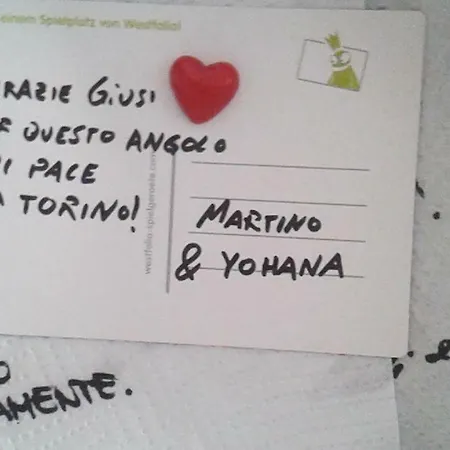 einem Spielplatz von Westfalia!
GRAZIE GIUSI
QUESTO ANGOLO
DI PACE
A TORINO!
MARTINO
& YOHANA
westfalia-spielgeraete.com
AMENTE.